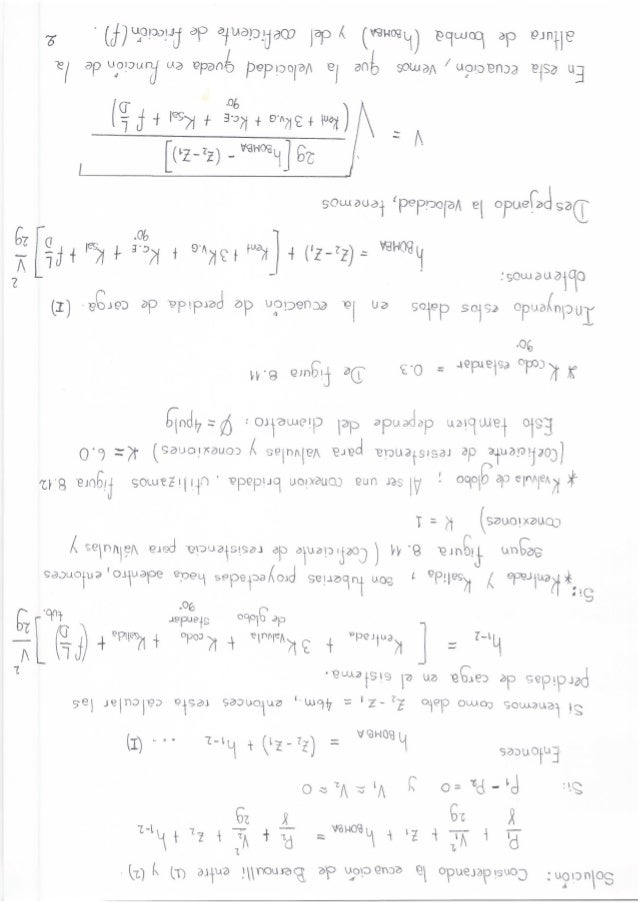 Solución: Considerando la ecuación de Bernoulli entre (1) y (2).
P₁/γ + V₁²/2g + z₁ + h BOMBA = P₂/γ + V₂²/2g + z₂ + h₁₋₂
Si: P₁ - P₂ = 0 y V₁ ≈ V₂ ≈ 0
Entonces
h BOMBA = (z₂ - z₁) + h₁₋₂ ... (I)
Si tenemos como dato z₂ - z₁ = 46m, entonces resta calcular las
perdidas de carga en el sistema.
h₁₋₂ = [ Kentrada + 3 Kvalvula de globo + K codo standar 90° + Ksalida + (f L/D) tub. ] V²/2g
Si: * Kentrada y Ksalida, son tuberias proyectadas hacia adentro, entonces
segun figura 8.11 (Coeficiente de resistencia para válvulas y
conexiones) K = 1
* Kvalvula de globo ; Al ser una conexion bridada. utilizamos figura 8.12
(Coeficiente de resistencia para valvulas y conexiones) K = 6.0
Esto tambien depende del diametro: Ø = 4pulg
* K codo estandar 90° = 0.3 De figura 8.11
Incluyendo estos datos en la ecuación de perdida de carga. (I)
obtenemos:
h BOMBA = (z₂ - z₁) + [ Kent + 3Kv.G + Kc.E 90° + Ksal + f L/D ] V²/2g
Despejando la velocidad, tenemos
V = √( 2g [ h BOMBA - (z₂ - z₁) ] / ( Kent + 3Kv.G + Kc.E 90° + Ksal + f L/D ) )
En esta ecuación, vemos que la velocidad queda en función de la
altura de bomba (h BOMBA) y del coeficiente de fricción (f).
2